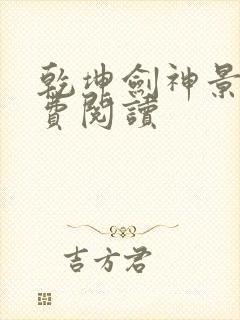 乾坤劍神景
費閱讀
吉方君